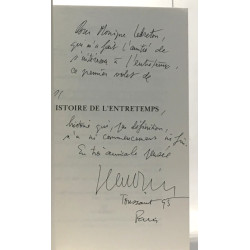 Pour Monique Lebreton,
qui m'a fait l'amitié de
s'intéresser à l'entretemps
ce premier volet de
ISTOIRE DE L'ENTRETEMPS,
histoire qui, par définition,
n'a ni commencement ni fin
En très amicale pensée
Toussaint 93
Paris